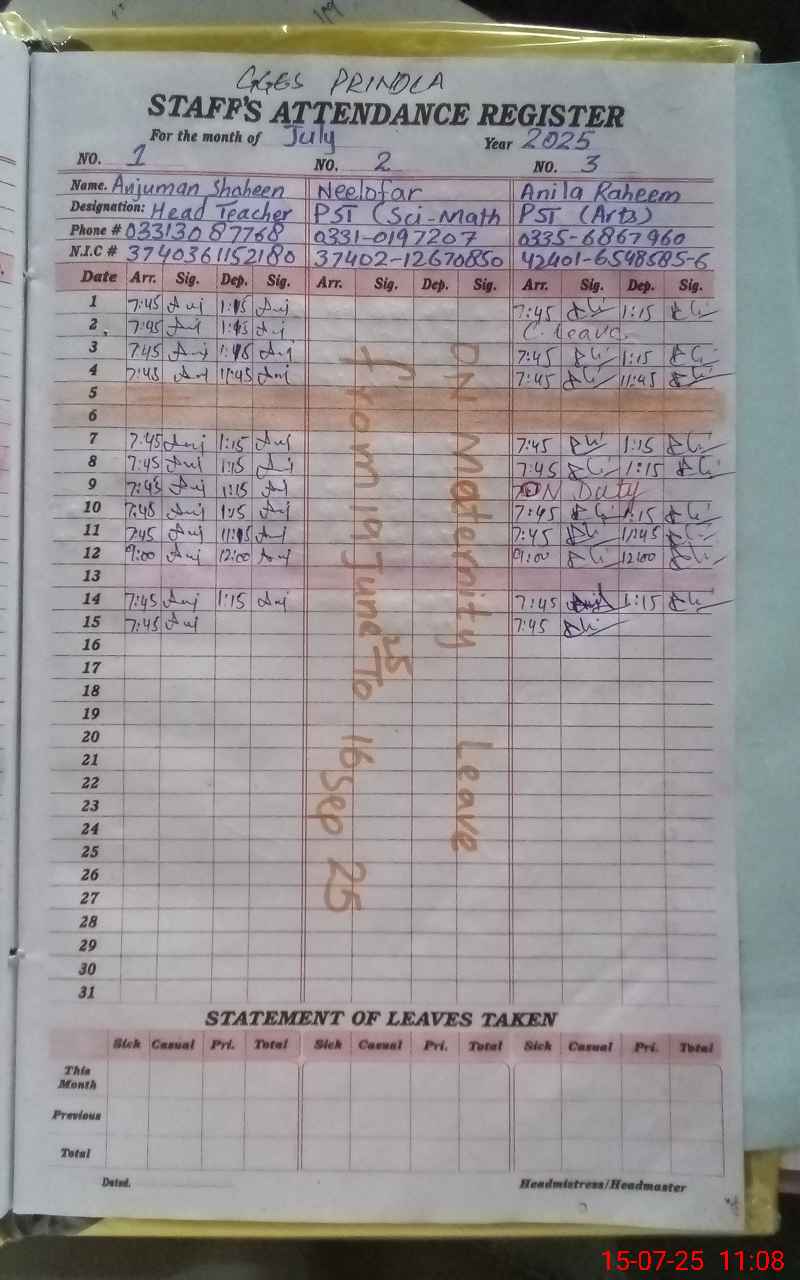 GGES PRINDLA
STAFF'S ATTENDANCE REGISTER
For the month of July Year 2025
NO. 1 NO. 2 NO. 3
Name. Anjuman Shaheen Neelofar Anila Raheem
Designation: Head Teacher PST (Sci-Math PST (Arts)
Phone # 03313087768 0331-0197207 0335-6867960
N.I.C # 3740361152180 37402-12670850 42401-6548585-6
Date Arr. Sig. Dep. Sig. Arr. Sig. Dep. Sig. Arr. Sig. Dep. Sig.
1 7:45 Anj 1:15 Anj 7:45 1:15
2 7:45 Anj 1:15 Anj C. Leave
3 7:45 Anj 1:15 Anj 7:45 1:15
4 7:45 Anj 11:45 Anj 7:45 11:45
5
6
7 7:45 Anj 1:15 Anj 7:45 1:15
8 7:45 Anj 1:15 Anj 7:45 1:15
9 7:45 Anj 1:15 Anj ON Duty
10 7:45 Anj 1:15 Anj 7:45 1:15
11 7:45 Anj Anj 7:45 11:45
12 9:00 Anj 12:00 Anj 9:00 12:00
13
14 7:45 Anj 1:15 Anj 7:45 1:15
15 7:45 Anj 7:45
16
17
18
19
20
21
22
23
24
25
26
27
28
29
30
31
ON Maternity Leave
from 19 June 25 To 16 Sep 25
STATEMENT OF LEAVES TAKEN
Sick Casual Pri. Total Sick Casual Pri. Total Sick Casual Pri. Total
This
Month
Previous
Total
Dated. Headmistress/Headmaster
15-07-25 11:08